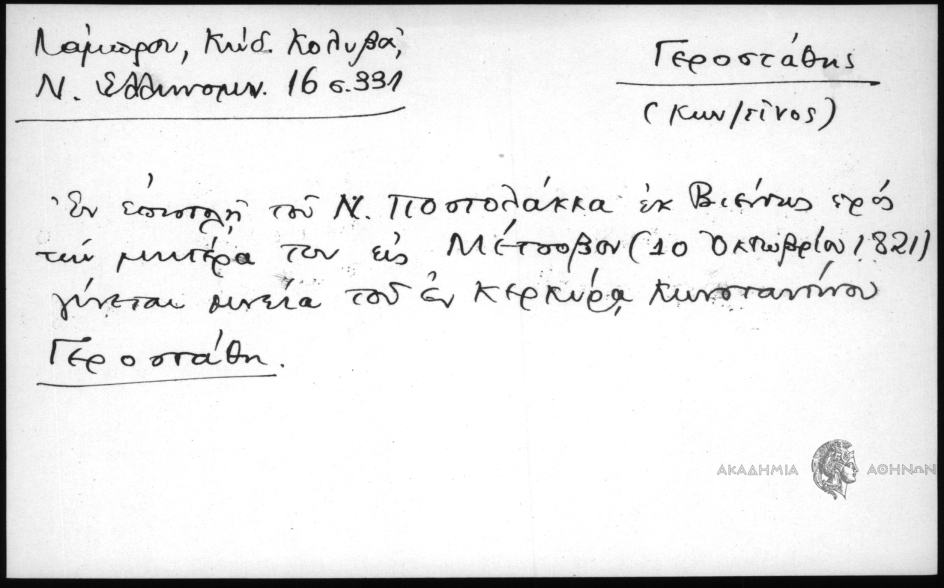 Λάμπρου, Κώδ. Κολυβᾶ,
Ν. Ἑλληνομν. 16 σ. 331
Γεροστάθης
(Κων/τῖνος)
Ἐν ἐπιστολῇ τοῦ Ν. Ποστολάκκα ἐκ Βιέννης πρός
τήν μητέρα του εἰς Μέτσοβον (10 Ὀκτωβρίου 1821)
γίνεται μνεία τοῦ ἐν Κερκύρᾳ Κωνσταντίνου
Γεροστάθη.
ΑΚΑΔΗΜΙΑ ΑΘΗΝΩΝ